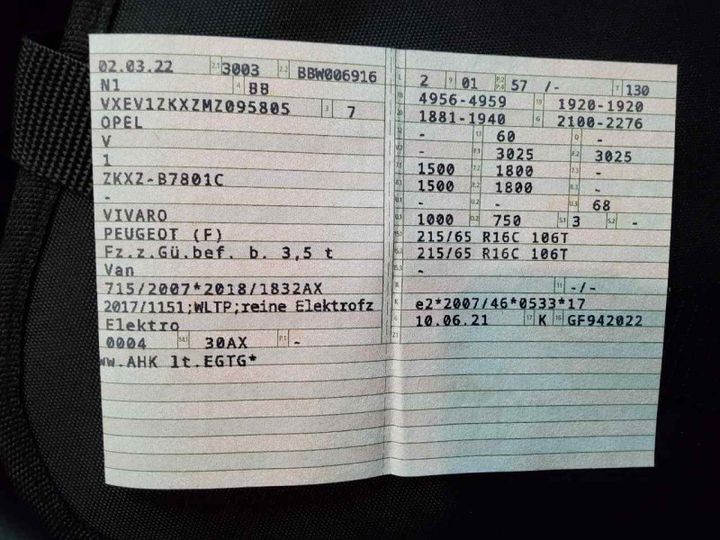 02.03.22 2.1 3003 2.2 BBW006916
N1 4 BB
VXEV1ZKXZMZ095805 3 7
OPEL
V
1
ZKXZ-B7801C
-
VIVARO
PEUGEOT (F)
Fz.z.Gü.bef. b. 3,5 t
Van
715/2007*2018/1832AX
2017/1151;WLTP;reine Elektrofz
Elektro
0004 30AX P.1 -
ww.AHK lt.EGTG*
L 2 9 01 57 /- T 130
18 4956-4959 19 1920-1920
20 1881-1940 G 2100-2276
- 13 60 Q -
- 3025 3025
1500 1800 -
1500 1800 -
- - 68
1000 750 S.1 3 S.2 -
215/65 R16C 106T
215/65 R16C 106T
-
R 11 -/-
K e2*2007/46*0533*17
6 10.06.21 17 K 16 GF942022
21